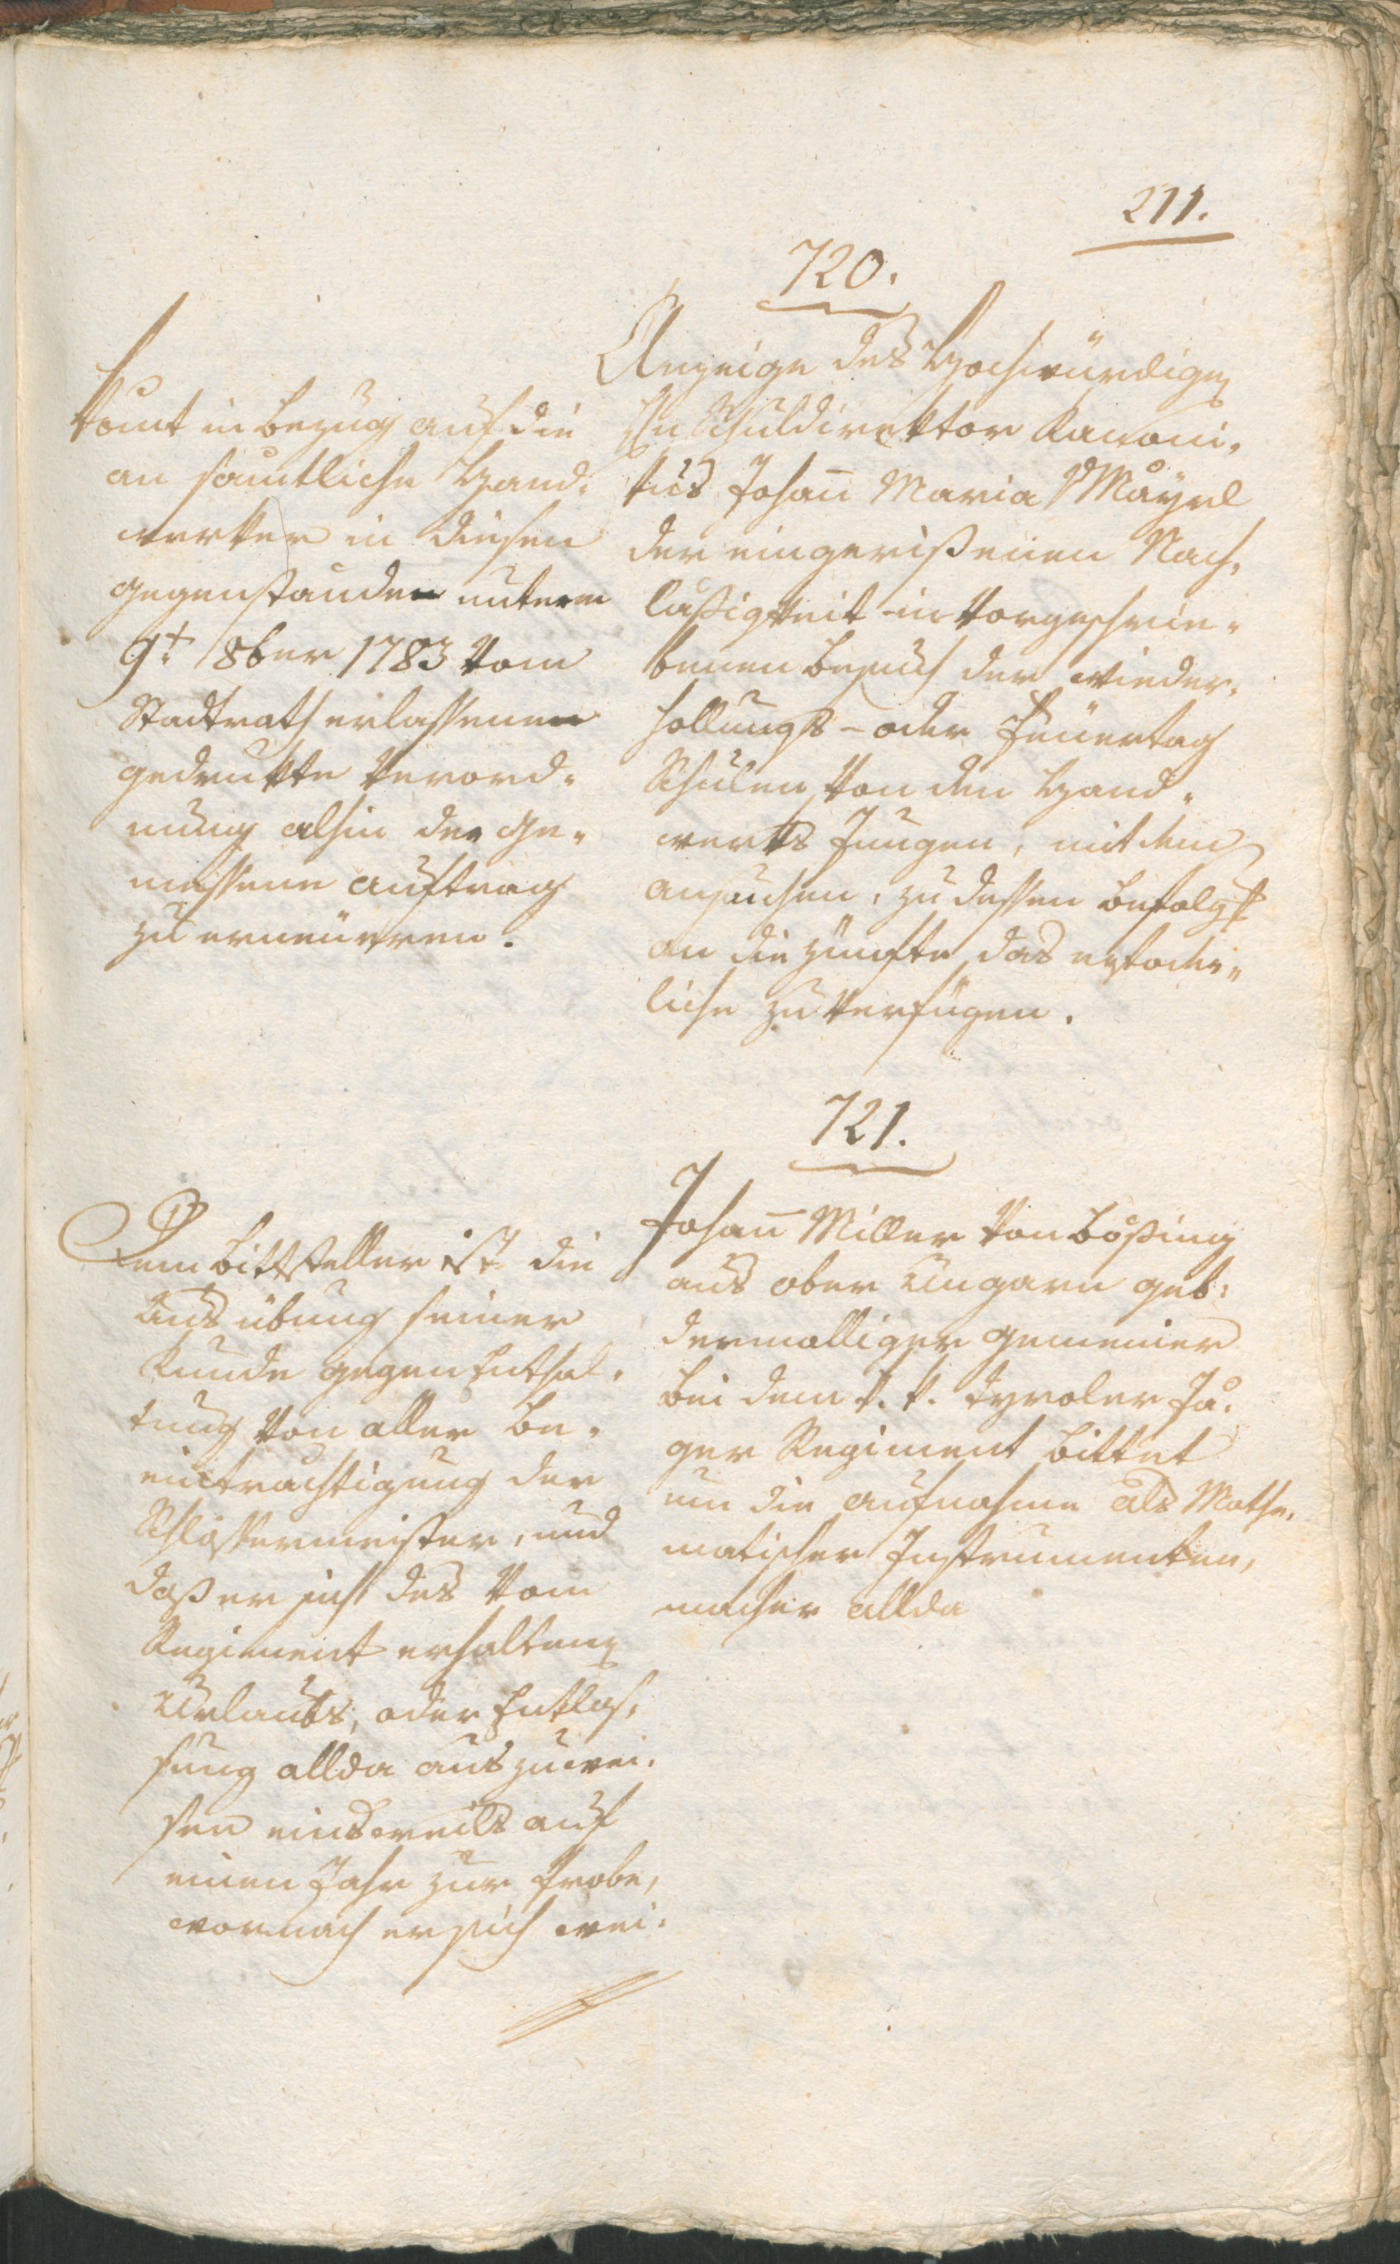 211.
720.
Anzeige des Hochwürdigen
Hn Schuldirektor Kanoni,
kus Johann Maria Mäyrl
der eingerißenen Nach,
läßigkeit in vorgeschrie,
benen Besuch der wieder,
hollungs - oder Feüertag
Schulen von den Hand,
werks Jungen, mit dem
Ansuchen, zu dessen Befolg
an die Zünfte das erforder,,
liche zu verfügen.
kömt in Bezug auf die
an sämtliche Hand,
werker in diesen
gegenstanden unterm
9t. 8ber 1783 vom
Stadtrath erlassenen
gedrukte Verord,
nung alhin der ge,
messene Auftrag
zu erneüeren.
721.
Johann Miller von Bößing
aus ober Ungarn geb:
dermalliger gemeiner
bei dem k. k. tyroler Jä,
ger Regiment bittet
um die Aufnahme als Mathe,
matischer Instrumenten,
macher allda
Dem Bittsteller ist die
Ausübung seiner
Kunde gegen Enthal,
tung von aller Be,
einträchtigung der
Schlössermeister, und
daß er sich des vom
Regiment erhaltenen
Urlaubs, oder Entlas,
sung allda auszuwei,
sen einsweils auf
einen Jahr zur Probe,
wornach er sich wei,